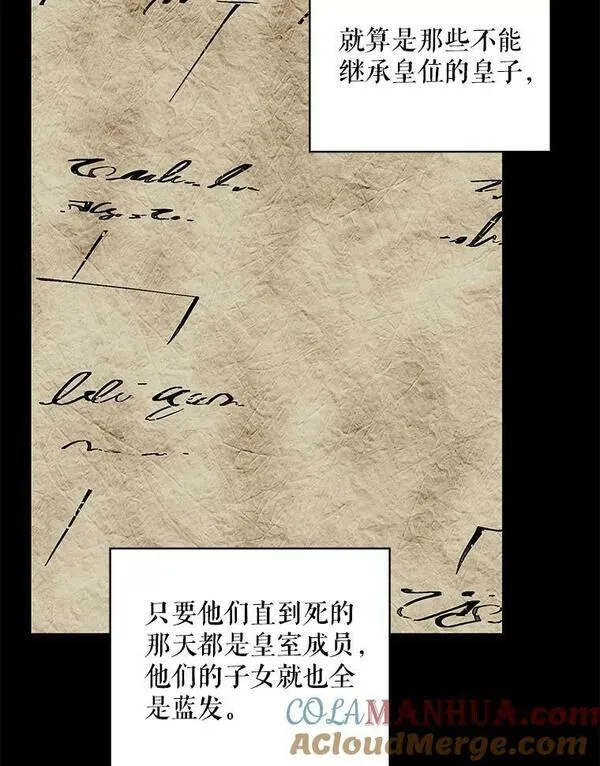 就算是那些不能
继承皇位的皇子，
只要他们直到死的
那天都是皇室成员，
他们的子女就也全
是蓝发。
COLAMANHUA.com
AcloudMerge.com